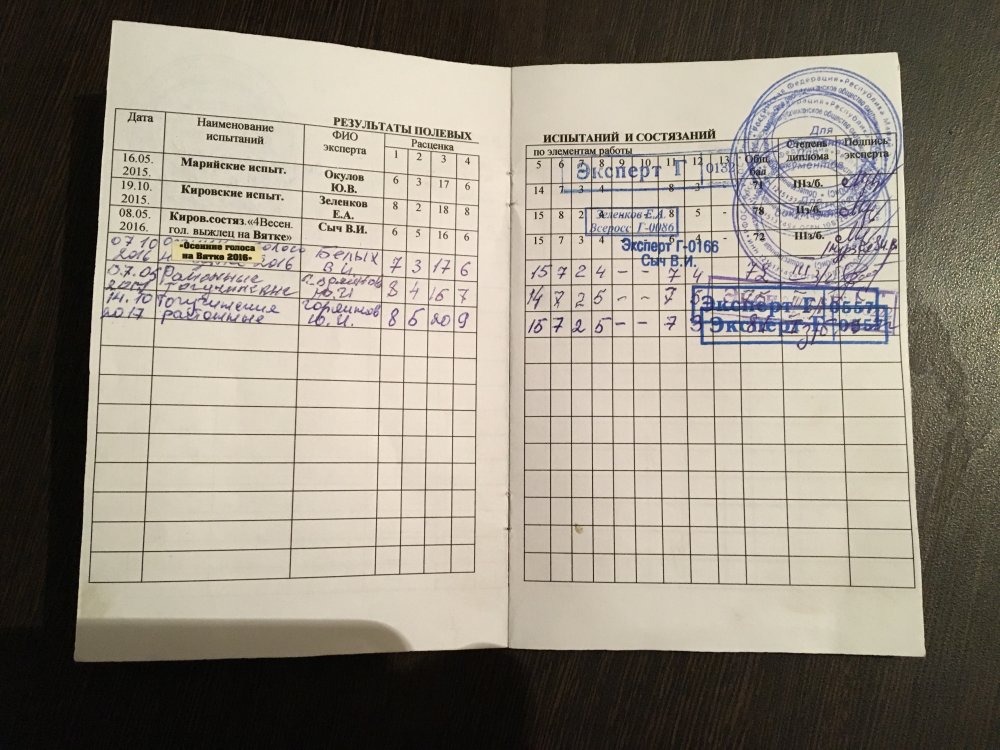 РЕЗУЛЬТАТЫ ПОЛЕВЫХ
Дата Наименование испытаний ФИО эксперта Расценка
1 2 3 4
16.05. 2015. Марийские испыт. Окулов Ю.В. 6 3 17 6
19.10. 2015. Кировские испыт. Зеленков Е.А. 8 2 18 8
08.05. 2016. Киров.состяз.«4Весен. гол. выжлец на Вятке» Сыч В.И. 6 5 16 6
07.10 2016 «Осенние голоса на Вятке 2016» 2016 Белых В.И. 7 3 17 6
2017 Районные Тогучинские Ю.И 8 4 15 7
14.10 2017 районные Ю.И. 8 5 20 9
ИСПЫТАНИЙ И СОСТЯЗАНИЙ
по элементам работы Общ. бал Степень диплома Подпись эксперта
5 6 7 8 9 10 11 12 13
Эксперт Г 0132
14 7 3 4 8 3 71 IIIз/б.
15 8 2 8 5 - 78 IIз/б.
Зеленков Е.А.
Всеросс Г-0086
15 7 3 4 72 IIIз/б.
Эксперт Г-0166
Сыч В.И.
15 7 2 4 - - 7 4 78
14 7 2 5 - - 7 5
Эксперт Г 0557
15 7 2 5 - - 7
Эксперт Г 0557
Для документов